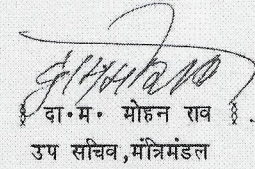 दा·म· मोहन राव
उप सचिव,मंत्रिमंडल